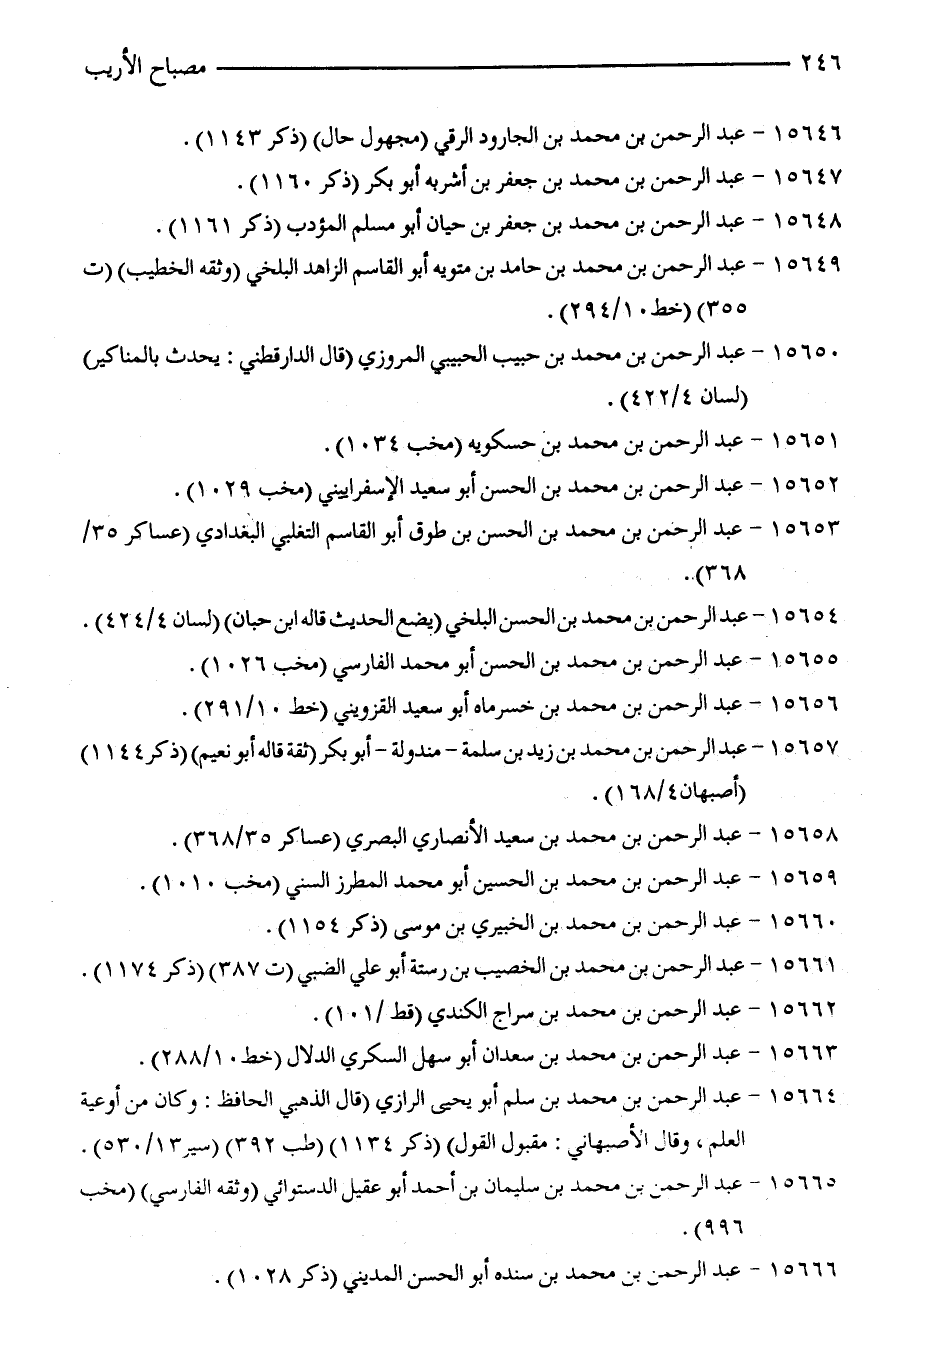 ٢٤٦ مصباح الأريب
١٥٦٤٦ – عبد الرحمن بن محمد بن الجارود الرقي (مجهول حال) (ذكر ١١٤٣) .
١٥٦٤٧ – عبد الرحمن بن محمد بن جعفر بن أشربه أبو بكر (ذكر ١١٦٠) .
١٥٦٤٨ – عبد الرحمن بن محمد بن جعفر بن حيان أبو مسلم المؤدب (ذكر ١١٦١) .
١٥٦٤٩ – عبد الرحمن بن محمد بن حامد بن متويه أبو القاسم الزاهد البلخي (وثقه الخطيب) (ت
٣٥٥) (خط ٢٩٤/١٠) .
١٥٦٥٠ – عبد الرحمن بن محمد بن حبيب الحبيبي المروزي (قال الدارقطني : يحدث بالمناكير)
(لسان ٤٢٢/٤) .
١٥٦٥١ – عبد الرحمن بن محمد بن حسكويه (مخب ١٠٣٤) .
١٥٦٥٢ – عبد الرحمن بن محمد بن الحسن أبو سعيد الإسفراييني (مخب ١٠٢٩) .
١٥٦٥٣ – عبد الرحمن بن محمد بن الحسن بن طوق أبو القاسم التغلبي البغدادي (عساكر ٣٥/
٣٦٨) .
١٥٦٥٤ – عبد الرحمن بن محمد بن الحسن البلخي (يضع الحديث قاله ابن حبان) (لسان ٤٢٤/٤) .
١٥٦٥٥ – عبد الرحمن بن محمد بن الحسن أبو محمد الفارسي (مخب ١٠٢٦) .
١٥٦٥٦ – عبد الرحمن بن محمد بن خسرماه أبو سعيد القزويني (خط ٢٩١/١٠) .
١٥٦٥٧ – عبد الرحمن بن محمد بن زيد بن سلمة – مندولة – أبو بكر (ثقة قاله أبو نعيم) (ذكر ١١٤٤)
(أصبهان ١٦٨/٤) .
١٥٦٥٨ – عبد الرحمن بن محمد بن سعيد الأنصاري البصري (عساكر ٣٦٨/٣٥) .
١٥٦٥٩ – عبد الرحمن بن محمد بن الحسين أبو محمد المطرز السني (مخب ١٠١٠) .
١٥٦٦٠ – عبد الرحمن بن محمد بن الخبيري بن موسى (ذكر ١١٥٤) .
١٥٦٦١ – عبد الرحمن بن محمد بن الخصيب بن رستة أبو علي الضبي (ت ٣٨٧) (ذكر ١١٧٤) .
١٥٦٦٢ – عبد الرحمن بن محمد بن سراج الكندي (قط /١٠١) .
١٥٦٦٣ – عبد الرحمن بن محمد بن سعدان أبو سهل السكري الدلال (خط ٢٨٨/١٠) .
١٥٦٦٤ – عبد الرحمن بن محمد بن سلم أبو يحيى الرازي (قال الذهبي الحافظ : وكان من أوعية
العلم ، وقال الأصبهاني : مقبول القول) (ذكر ١١٣٤) (طب ٣٩٢) (سير ٥٣٠/١٣) .
١٥٦٦٥ – عبد الرحمن بن محمد بن سليمان بن أحمد أبو عقيل الدستوائي (وثقه الفارسي) (مخب
٩٩٦) .
١٥٦٦٦ – عبد الرحمن بن محمد بن سنده أبو الحسن المديني (ذكر ١٠٢٨) .